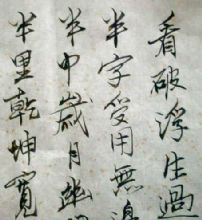 看破浮生過
半字受用無邊
半中歲月幽
半里乾坤寬